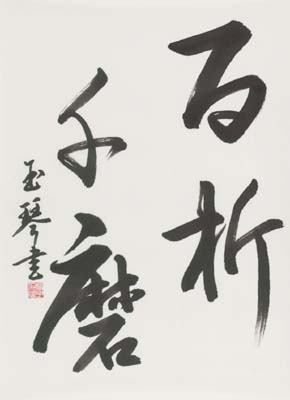 百折
千磨
玉琴書